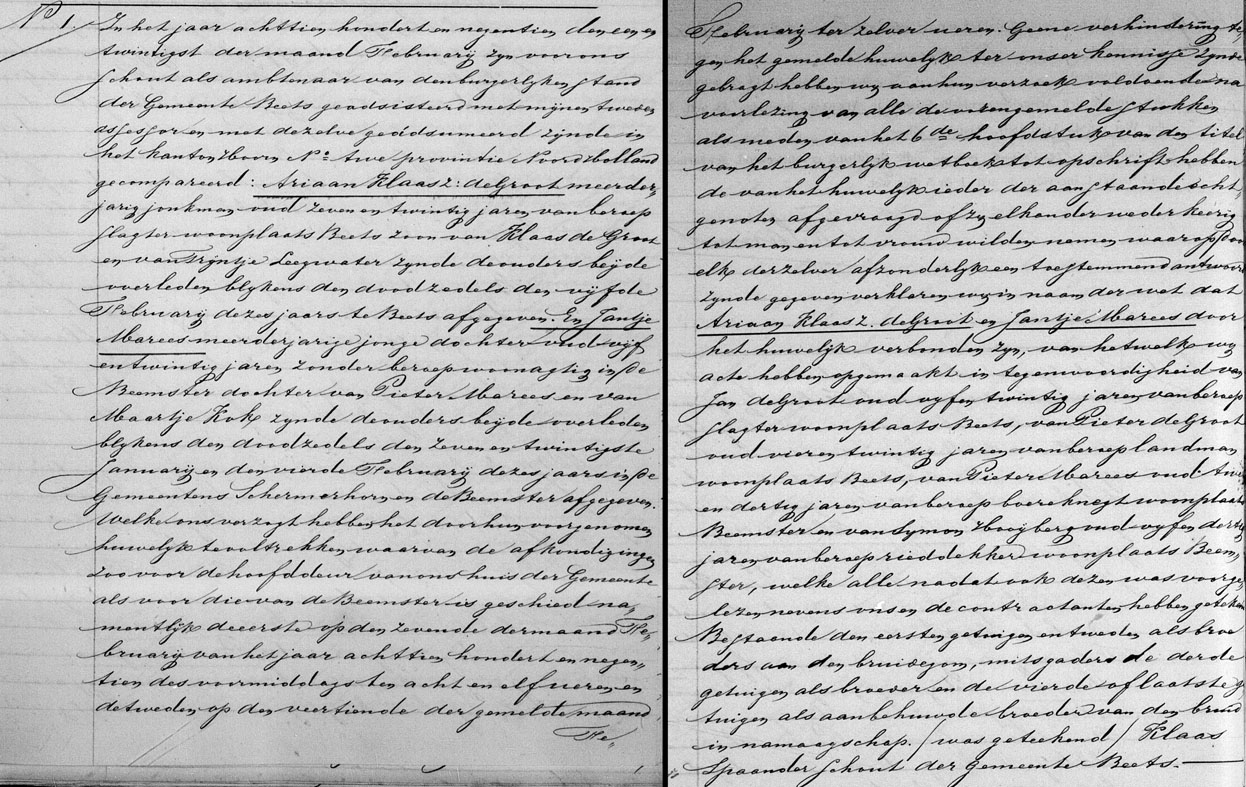 No 1. In het jaar achttien hondert en negentien den een en
twintigst der maand Februarij zyn voor ons
schout als ambtenaar van den burgerlyken stand
der Gemeente Beets geadsisteerd met mijnen tweden
assessor en met dezelve geadsumeerd zijnde in
het kanton Hoorn No. twe provintie Noordholland
gecompareerd: Ariaan Klaasz: de Groot meerder„
jarig jonkman oud zeven en twintig jaren van beroep
slagter woonplaats Beets zoon van Klaas de Groot
en van Trijntje Leegwater zynde de ouders beijde
overleden blykens den doodzedels den vijfde
Februarij dezes jaars te Beets afgegeven. En Jantje
Marees meerderjarige jonge dochter oud vijf
en twintig jaren zonder beroep woonagtig in de
Beemster dochter van Pieter Marees en van
Maartje Kok zynde de ouders beijde overleden
blykens den doodzedels den zeven en twintigste
Januarij en den vierde Februarij dezes jaars in de
Gemeentens Schermerhorn en de Beemster afgegeven.
Welke ons verzogt hebben het door hun voorgenomen
huwelijk te voltrekken waarvan de afkondigingen
zoo voor de hoofddeur van ons huis der Gemeente
als voor die van de Beemster is geschied na„
mentlijk de eerste op den zevende der maand Fe„
bruarij van het jaar achttien hondert en negen„
tien des voormiddags ten acht en elf ueren en
de tweden op den veertiende der gemelde maand
Fe„
Februarij ter zelver ueren. Geene verhindering te„
gen het gemelde huwelijk ter onser kennisse zynde
gebragt hebben wy aan hun verzoek voldoende na
voorlezing van alle de vorengemelde stukken
als meden van het 6de hoofdstuk van den titel
van het burgerlijk wetboek tot opschrift hebben
de van het huwelijk ieder der aanstaande echt„
genoten afgevraagd of zy elkander wederkeerig
tot man en tot vrouw wilden nemen waarop door
elk derzelver afzonderlyk een toestemmend antwoord
zynde gegeven verklaren wy in naam der wet dat
Ariaan Klaasz. de Groot en Jantje Marees door
het huwelijk verbonden zyn, van hetwelk wy
acte hebben opgemaakt in tegenwoordigheid van
Jan de Groot oud vyf en twintig jaren van beroep
slagter woonplaats Beets, van Pieter de Groot
oud vier en twintig jaren van beroep landman
woonplaats Beets, van Pieter Marees oud twee
en dertig jaren van beroep boereknegt woonplaats
Beemster en van Symon Hooijberg oud vyf en dertig
jaren van beroep rieddekker woonplaats Beem„
ster, welke alle nadat ook dezen was voorge„
lezen nevens ons en de contractanten hebben geteken
Bestaande den eersten getuigen en tweden als broe„
ders van den bruidegom, mitsgaders de derde
getuigen als broeder en de vierde of laatste ge
tuigen als aanbehuwde broeder van den bruid
in namaagschap. / was geteekend / Klaas
Spaander schout der Gemeente Beets.